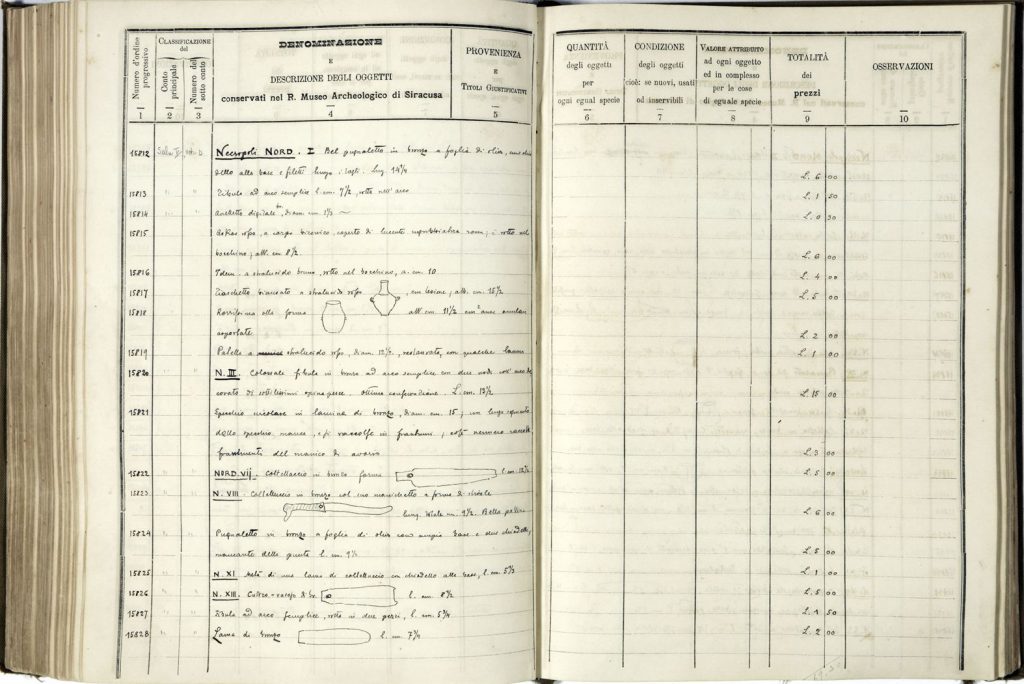 Numero d'ordine progressivo
CLASSIFICAZIONE del
Conto principale
Numero del sotto conto
DENOMINAZIONE
E
DESCRIZIONE DEGLI OGGETTI
conservati nel R. Museo Archeologico di Siracusa
PROVENIENZA
E
TITOLI GIUSTIFICATIVI
QUANTITÀ
degli oggetti
per
ogni egual specie
CONDIZIONE
degli oggetti
cioè: se nuovi, usati
od inservibili
VALORE ATTRIBUITO
ad ogni oggetto
ed in complesso
per le cose
di eguale specie
TOTALITÀ
dei
prezzi
OSSERVAZIONI
1 2 3 4 5 6 7 8 9 10
15812 Necropoli NORD. I Bel pugnaletto in bronzo a foglia di olivo,
dello alla base e filetti lungo i tagli. lung. 14¾ L. 6 00
15813 " " Fibula ad arco semplice l. cm. 7½, rotta nell'arco L. 1 50
15814 " " Anelletto digitale br., diam. cm. L. 0 30
15815 " " Askos a corpo coperto di lucente rotto nel
bocchino; alt. cm 8½ L. 6 00
15816 " " Idem. a stralucido bruno, rotto nel bocchino, a. cm. 10 L. 4 00
15817 " " Fiaschetto, a stralucido , alt. cm. L. 5 00
15818 " " alla forma alt. cm. 11½ anse
asportate L. 2 00
15819 " " a stralucido , diam. 12½, restaurata, con qualche L. 1 00
15820 " " N. III. Colossale fibula in bronzo ad arco semplice con due nodi
di sottilissimi spinapesce. ottima conservazione. L. cm. 13½ L. 15 00
15821 " " Specchio circolare in lamina di bronzo, diam. cm. 15; un lungo segmento
dello specchio manca, e fu raccolto in frantumi; così vennero raccolti
frammenti del manico di avorio L. 3 00
15822 " " NORD. VIJ. Coltellaccio in bronzo forma l. cm. L. 5 00
15823 " " N. VIII. Coltelluccio in bronzo col suo manichetto a forma di
lung. totale cm. 9½. Bella patina L. 6 00
15824 " " Pugnaletto in bronzo a foglia di olivo con ampia base e due chiodelli,
mancante della punta l. cm. 9½ L. 5 00
15825 " " N. XI Metà di una lama di coltelluccio con chiodello alla base, l. cm. 5½ L. 1 00
15826 " " N. XIII. di br. l. cm. 8½ L. 5 00
15827 " " Fibula ad arco semplice, rotta in due pezzi, l. cm. 5¾ L. 1 50
15828 " " Lama di bronzo l. cm. 7¾ L. 2 00